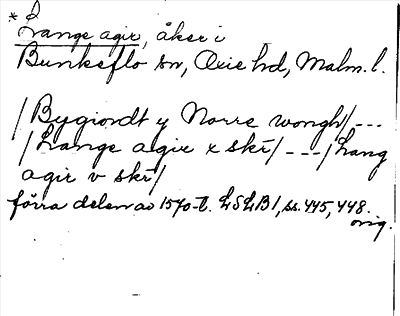 * Lange agir, åker i
Bunkeflo sn, Oxie hd, Malm. l.
/Bygiordt y Norre wongh/ ---
/Lange agir x skr/ --- /Lang
agir v skr/
förra delen av 1570-t. LSLB 1, ss. 445, 448.
orig.